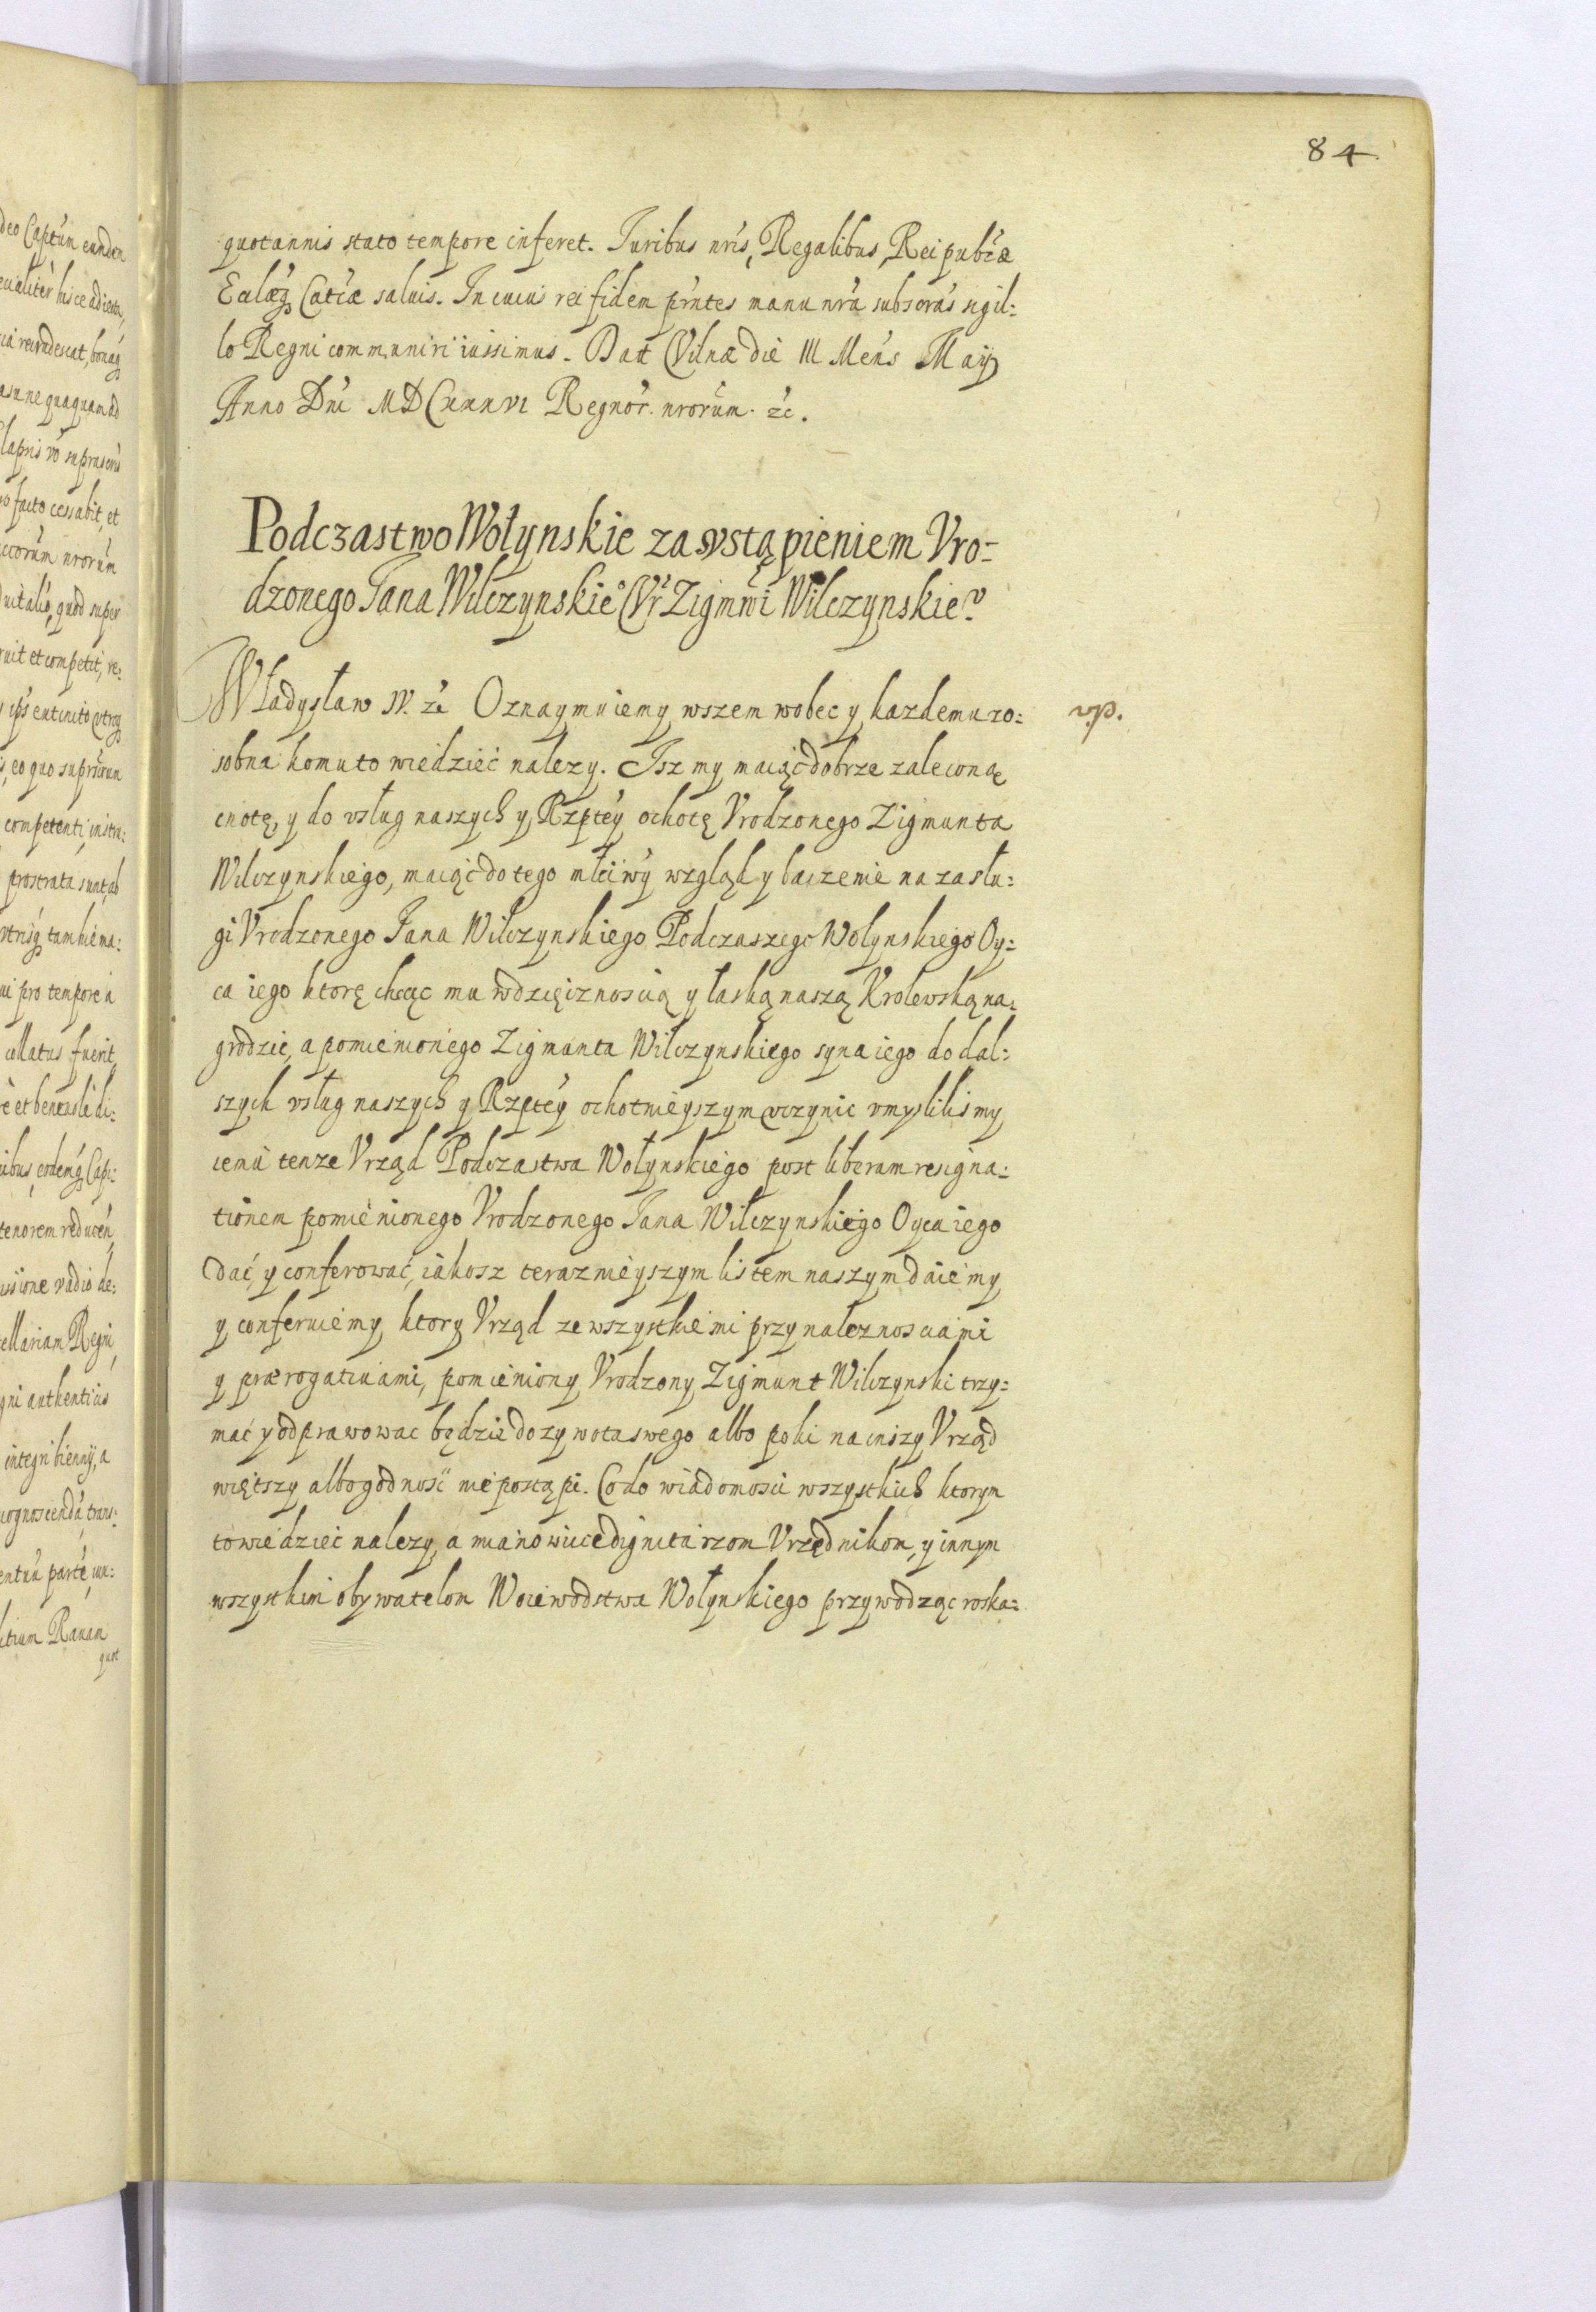 84
quotannis stato tempore inferet. Juribus nris, Regalibus, Reipubcæ
Eclæq Catcæ saluis. In cuius rei fidem prntes manu nra subscras sigil:
lo Regni communiri iussimus. Dat Vilnæ die III Mens Maij
Anno Dni MDCXXXVI Regnor. nrorum. etc.
Podczastwo Wołynskie za vstąpieniem Vro-
dzonego Jana Wilczynskieo Vr Zigmwi Wilczynskiev
Władysław IV. etc Oznaymuiemy wszem wobec y kazdemu zo:
sobna komu to wiedzieć nalezy. Isz my maiąc dobrze zaleconąę
cnotę, y do vsług naszych y Rzptey ochotę Vrodzonego Zigmunta
Wilczynskiego, maiąc do tego młciwy wzgląd y baczenie na zasłu:
gi Vrodzonego Jana Wilczynskiego Podczaszego Wołynskiego Oy:
ca iego ktorę chcąc mu wdzięcznoscią y łaską naszą Krolewską na:
grodzic, a pomienionego Zigmunta Wilczynskiego syna iego do dal:
szych vsług naszych y Rzptey ochotnieyszym vczynic vmyslilismy
iemu tenze Vrząd Podczastwa Wołynskiego post liberam resigna:
tionem pomienionego Vrodzonego Jana Wilczynskiego Oyca iego
dać y conferować, iakosz teraznieyszym listem naszym daiemy
y conferuiemy, ktory Vrząd ze wszystkiemi przynaleznosciami
y prærogatiuami, pomieniony Vrodzony Zigmunt Wilczynski trzy:
mać y odprawowac będzie do zywota swego albo poki na inszy Vrząd
więtszy albo godność nie postąpi. Co do wiadomosci wszystkich ktorym
to wiedzieć nalezy, a mianowicie dignitarzom Vrzędnikom, y innym
wszystkim obywatelom Woiewodstwa Wołynskiego przywodząc roska: